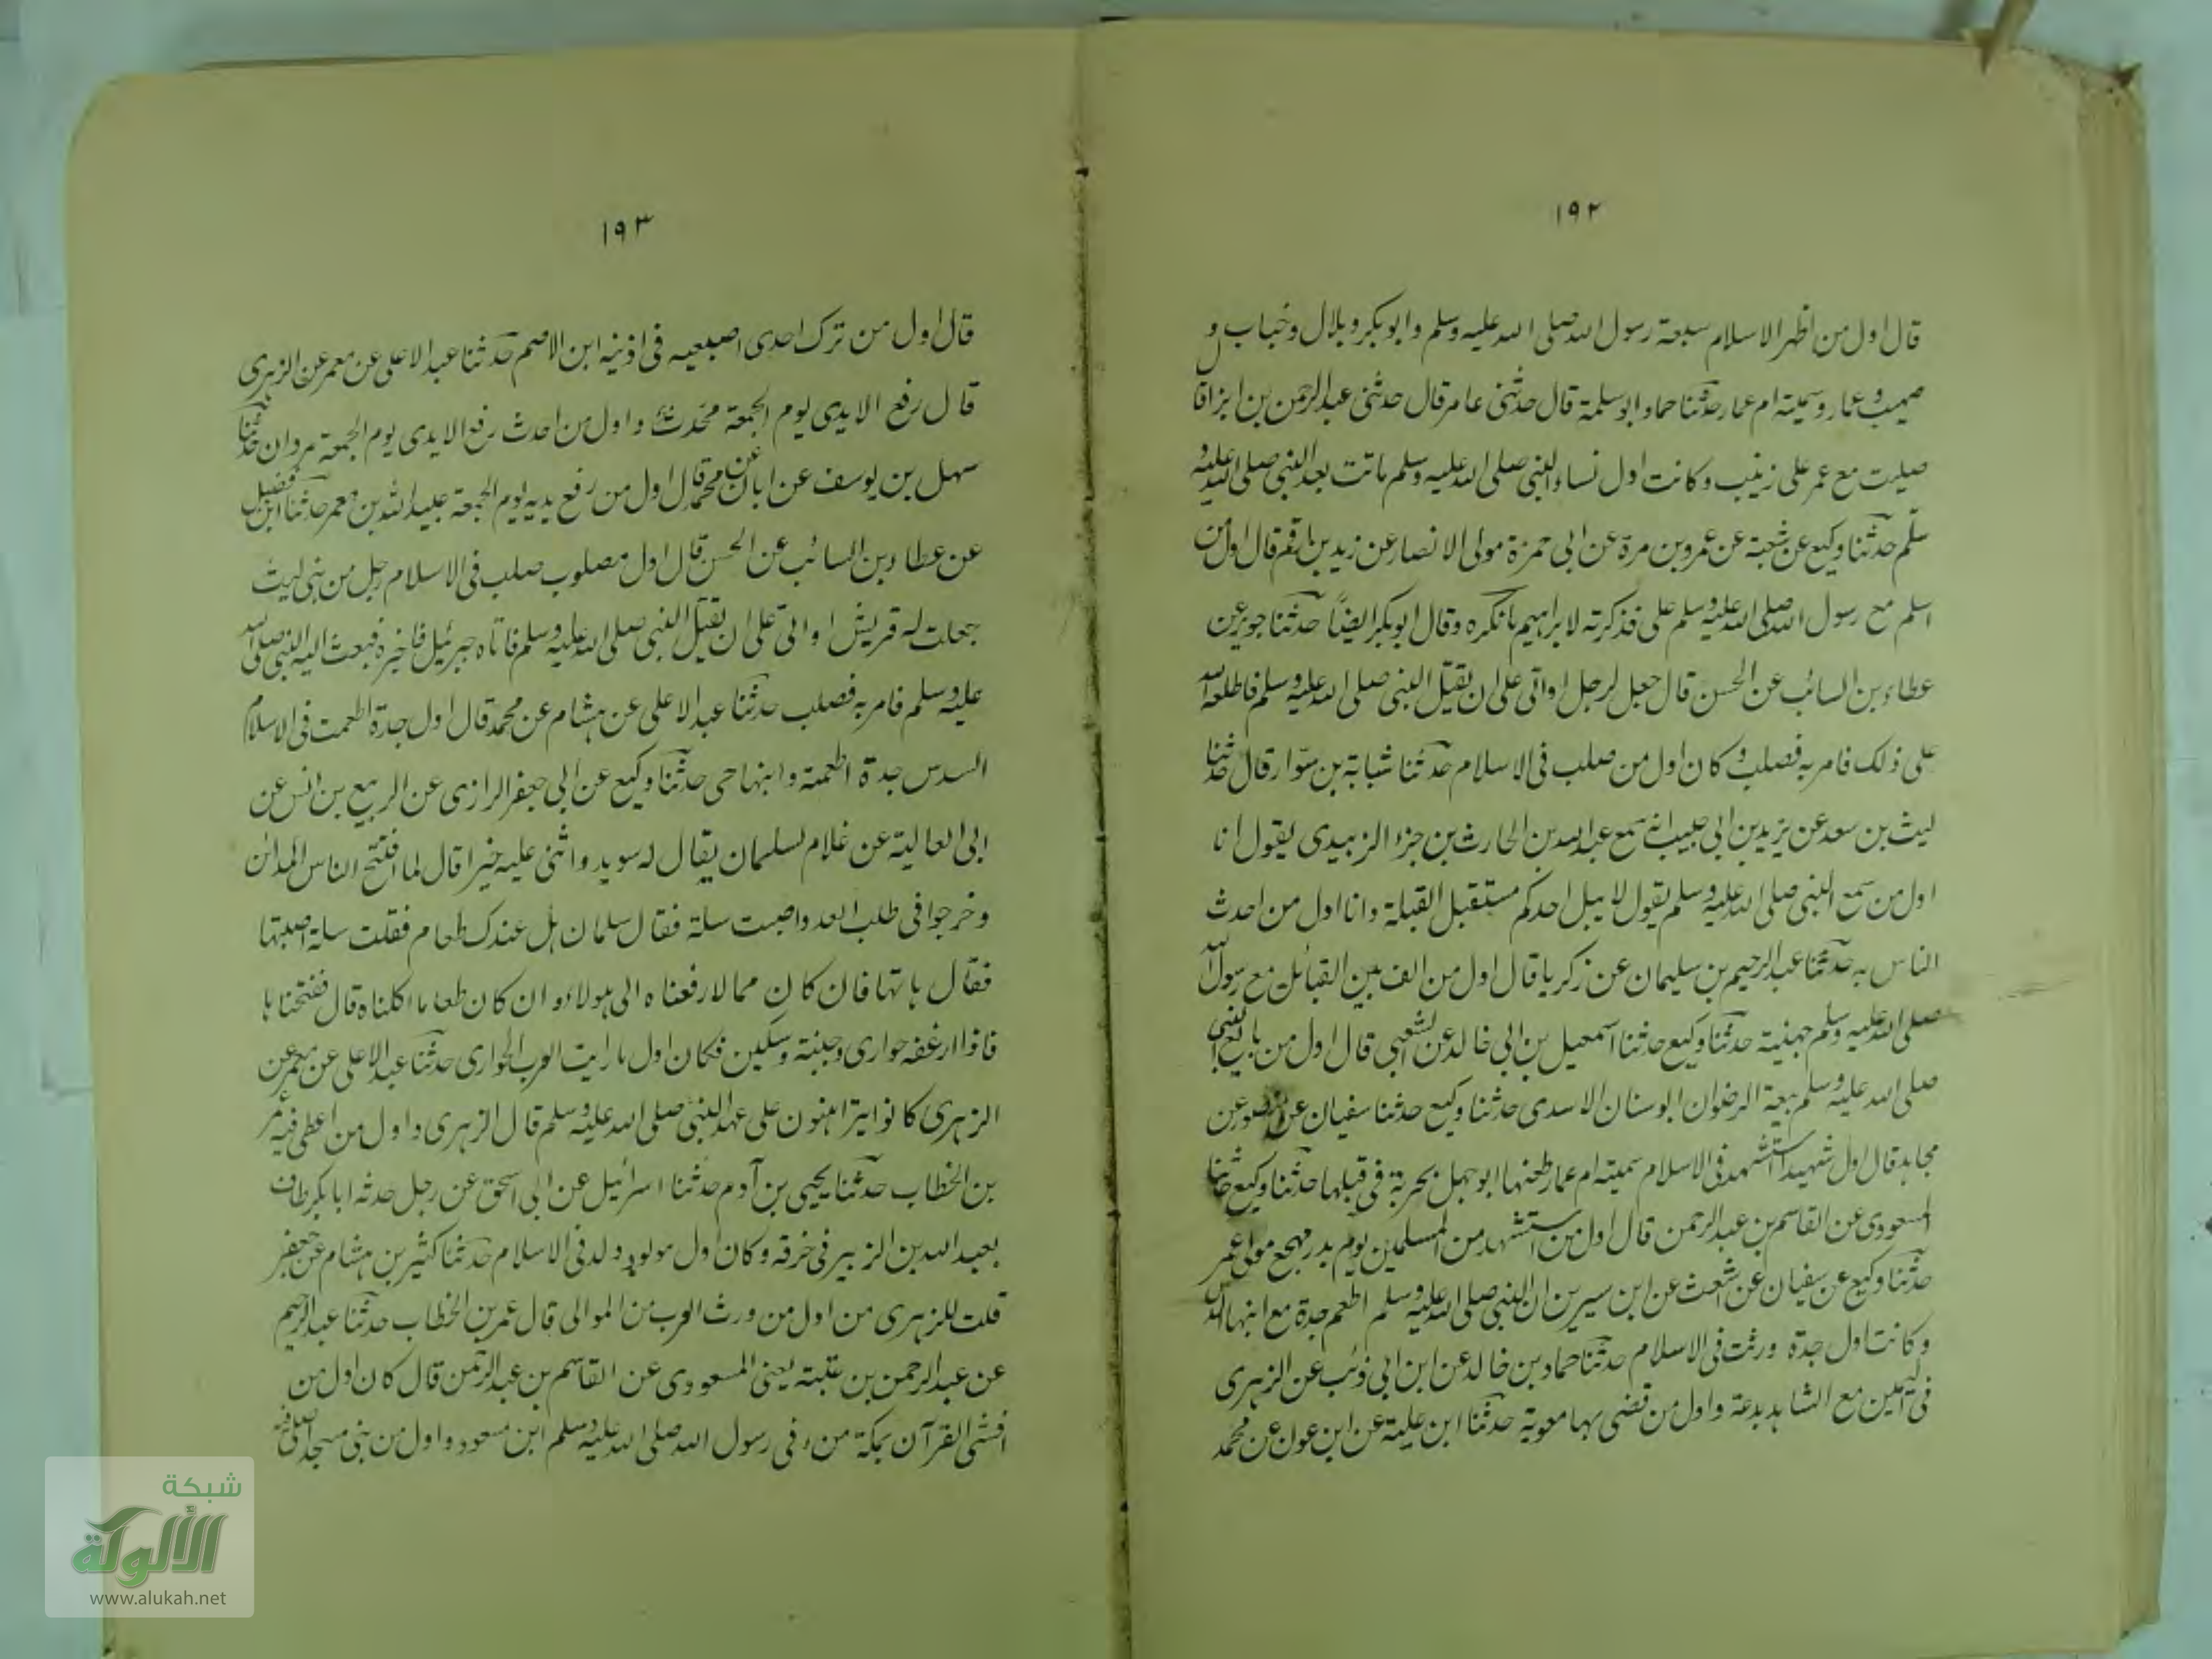 ١٩٢
قال اول من اظهر الاسلام سبعة رسول الله صلى الله عليه وسلم وابو بكر وبلال وخباب و
صهيب وعمار وسمية ام عمار حدثنا حماد ابو سلمة قال حدثنى عامر قال حدثنى عبد الرحمن بن ابزا قا
صليت مع عمر على زينب وكانت اول نساء النبى صلى الله عليه وسلم ماتت بعد النبى صلى الله عليه و
سلم حدثنا وكيع عن شعبة عن عمرو بن مرة عن ابى حمزة مولى الانصار عن زيد بن ارقم قال اول من
اسلم مع رسول الله صلى الله عليه وسلم على فذكرته لابراهيم فانكره وقال ابو بكر ايضًا حدثنا جرير عن
عطاء بن السائب عن الحسن قال جعل لرجل اواقى على ان يقتل النبى صلى الله عليه وسلم فاطلعه الله
على ذلك فامر به فصلب و كان اول من صلب فى الاسلام حدثنا شبابة بن سوّار قال حدثنا
ليث بن سعد عن يزيد بن ابى حبيب انه سمع عبد الله بن الحارث بن جزء الزبيدى يقول انا
اول من سمع النبى صلى الله عليه وسلم يقول لا يبل احدكم مستقبل القبلة وانا اول من احدث
الناس به حدثنا عبد الرحيم بن سليمان عن زكريا قال اول من الف بين القبائل مع رسول الله
صلى الله عليه وسلم جهينة حدثنا وكيع حدثنا اسمعيل بن ابى خالد عن الشعبى قال اول من بايع النبى
صلى الله عليه وسلم بيعة الرضوان ابو سنان الاسدى حدثنا وكيع حدثنا سفيان عن منصور عن
مجاهد قال اول شهيد استشهد فى الاسلام سمية ام عمار طعنها ابو جهل بحربة فى قبلها حدثنا وكيع حدثنا
المسعودى عن القاسم بن عبد الرحمن قال اول من استشهد من المسلمين يوم بدر مهجع مولى عمر
حدثنا وكيع عن سفيان عن اشعث عن ابن سيرين ان النبى صلى الله عليه وسلم اطعم جدة مع ابنها السدس
وكانت اول جدة ورثت فى الاسلام حدثنا حماد بن خالد عن ابن ابى ذئب عن الزهرى
فى اليمين مع الشاهد بدعة واول من قضى بها معوية حدثنا ابن علية عن ابن عون عن محمد
١٩٣
قال اول من ترك احدى اصبعيه فى اذنيه ابن الاصم حدثنا عبد الاعلى عن معمر عن الزهرى
قال رفع الايدى يوم الجمعة محدث واول من احدث رفع الايدى يوم الجمعة مروان حدثنا
سهل بن يوسف عن ابان عن محمد قال اول من رفع يديه يوم الجمعة عبيد الله بن معمر حدثنا ابن فضيل
عن عطاء بن السائب عن الحسن قال اول مصلوب صلب فى الاسلام رجل من بنى ليث
جعلت له قريش اواقى على ان يقتل النبى صلى الله عليه وسلم فاتاه جبرئيل فاخبره فبعث اليه النبى صلى الله
عليه وسلم فامر به فصلب حدثنا عبد الاعلى عن هشام عن محمد قال اول جدة اطعمت فى الاسلام
السدس جدة اطعمته وابنها حى حدثنا وكيع عن ابى جعفر الرازى عن الربيع بن انس عن
ابى العالية عن غلام لسلمان يقال له سويد واثنى عليه خيرا قال لما افتتح الناس المدائن
وخرجوا فى طلب العدو اصبت سلة فقال سلمان هل عندك طعام فقلت سلة اصبتها
فقال هاتها فان كان مالا رفعناه الى هولاء وان كان طعاما اكلناه قال ففتحناها
فاذا ارغفه حوارى وجبنة وسكين فكان اول ما رايت العرب الحوارى حدثنا عبد الاعلى عن معمر عن
الزهرى كانوا يتراهنون على عهد النبى صلى الله عليه وسلم قال الزهرى واول من اعطى فيه عمر
بن الخطاب حدثنا يحيى بن آدم حدثنا اسرائيل عن ابى اسحق عن رجل حدثه ابا بكر طاف
بعبد الله بن الزبير فى خرقه وكان اول مولود ولد فى الاسلام حدثنا كثير بن هشام عن جعفر
قلت للزهرى من اول من ورث العرب من الموالى قال عمر بن الخطاب حدثنا عبد الرحيم
عن عبد الرحمن بن عتبة يعنى المسعودى عن القاسم بن عبد الرحمن قال كان اول من
افشى القرآن بمكة من فى رسول الله صلى الله عليه وسلم ابن مسعود واول من بنى مسجدا صلى فيه
شبكة
الألوكة
www.alukah.net